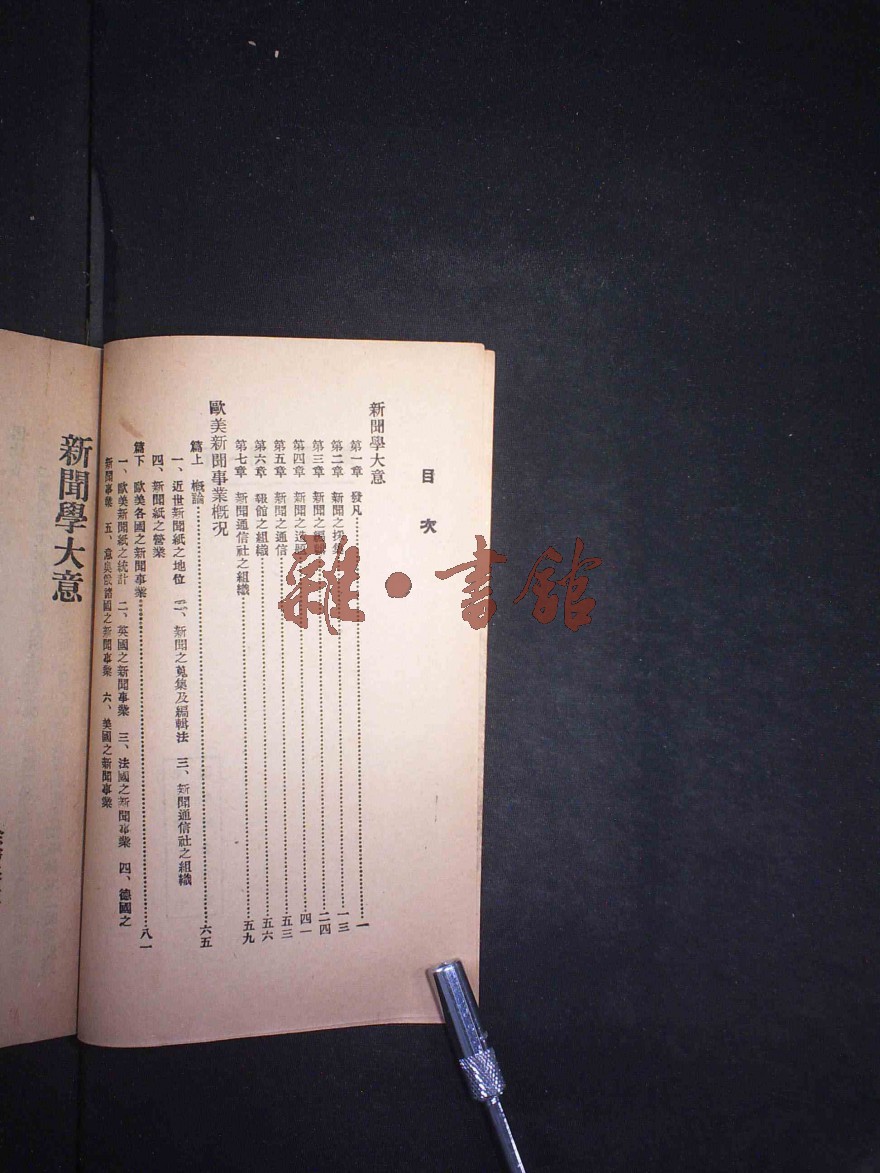 目次
新聞學大意
第一章 發凡……一
第二章 新聞之採集……一三
第三章 新聞之編輯……二四
第四章 新聞之造題……四一
第五章 新聞之通信……五三
第六章 報館之組織……五六
第七章 新聞通信社之組織……五九
歐美新聞事業概況
篇上 概論……六五
一、近世新聞紙之地位 二、新聞之蒐集及編輯法 三、新聞通信社之組織
四、新聞紙之營業
篇下 歐美各國之新聞事業……八一
一、歐美新聞紙之統計 二、英國之新聞事業 三、法國之新聞事業 四、德國之
新聞事業 五、意奧俄諸國之新聞事業 六、美國之新聞事業
新聞學大意
雜·書館